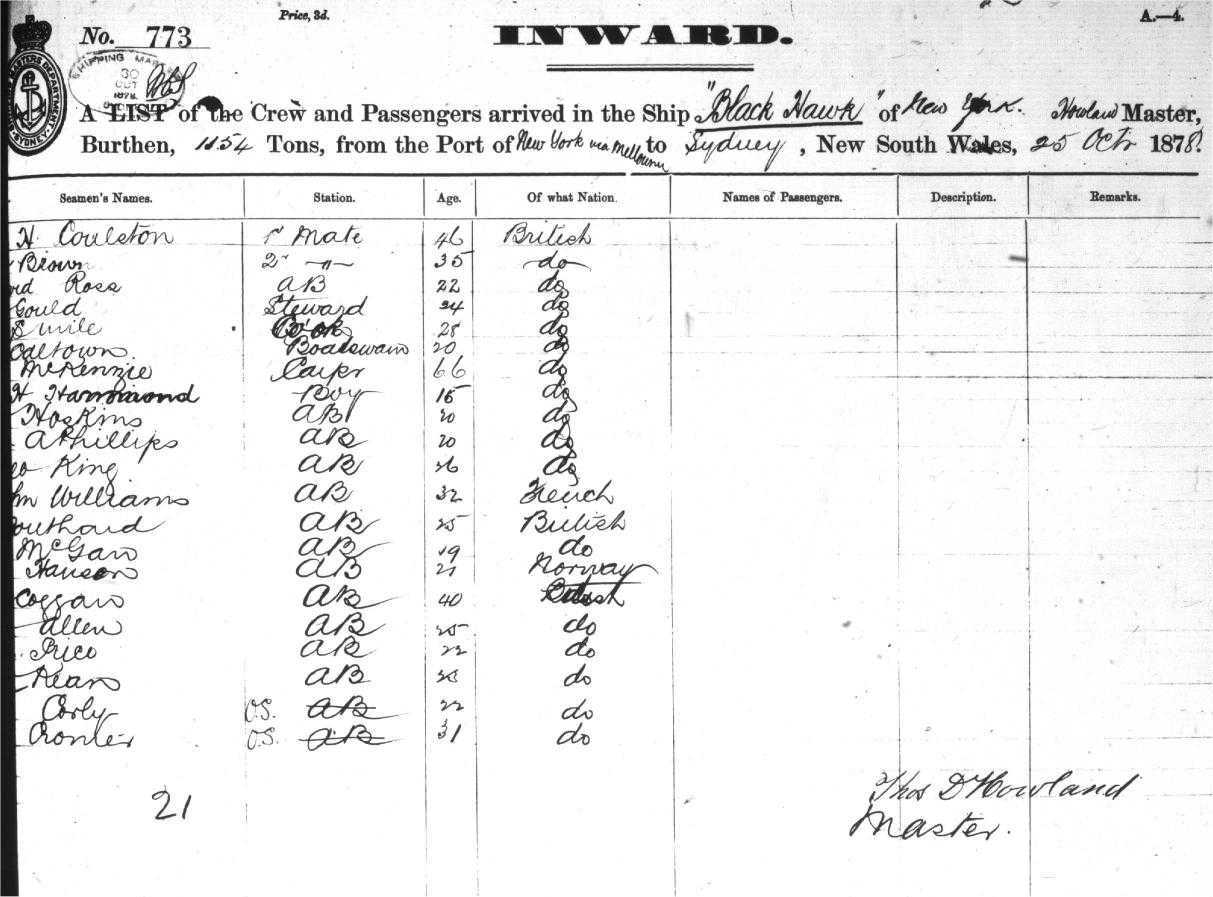 Price, 3d.
A.—4.
No. 773
INWARD.
SHIPPING MASTERS DEPARTMENT SYDNEY
SHIPPING MAS
30
OCT
1878
A LIST of the Crew and Passengers arrived in the Ship "Black Hawk" of New York. Howland Master,
Burthen, 1154 Tons, from the Port of New York via Melbourne to Sydney, New South Wales, 25 Octr 1878.
Seamen's Names. Station. Age. Of what Nation. Names of Passengers. Description. Remarks.
H Coulston 1r Mate 46 British
Brown 2r —"— 35 do
Ross AB 22 do
Gould Steward 24 do
Emile Cook 28 do
Boatswain 20 do
McKenzie Carpr 66 do
H Hammond Boy 15 do
Hoskins AB 20 do
A Phillips AB 20 do
King AB 26 do
Williams AB 32 French
outhard AB 25 British
McGaw AB 19 do
Hanson AB 21 Norway
Coggan AB 40 British
Allen AB 25 do
Price AB 22 do
Kean AB do
Corly O.S. AB 22 do
O.S. AB 31 do
21
Thos D Howland
Master.